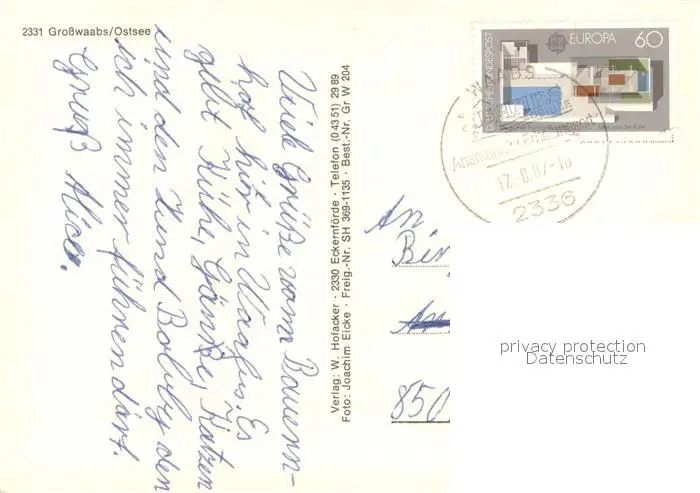 2331 Großwaabs/Ostsee
Viele Grüße vom Bauern-
hof hier in Waabs. Es
gibt Kühe, Gänse, Katzen
und den Hund Bobby den
ich immer führen darf.
Gruß Alice.
Verlag: W. Hofacker · 2330 Eckernförde · Telefon (0 43 51) 29 89
Foto: Joachim Eicke · Freig.-Nr. SH 369-1135 · Best.-Nr. Gr W 204
EUROPA 60
BUNDESPOST
WAABS
2336
An
850
privacy protection
Datenschutz